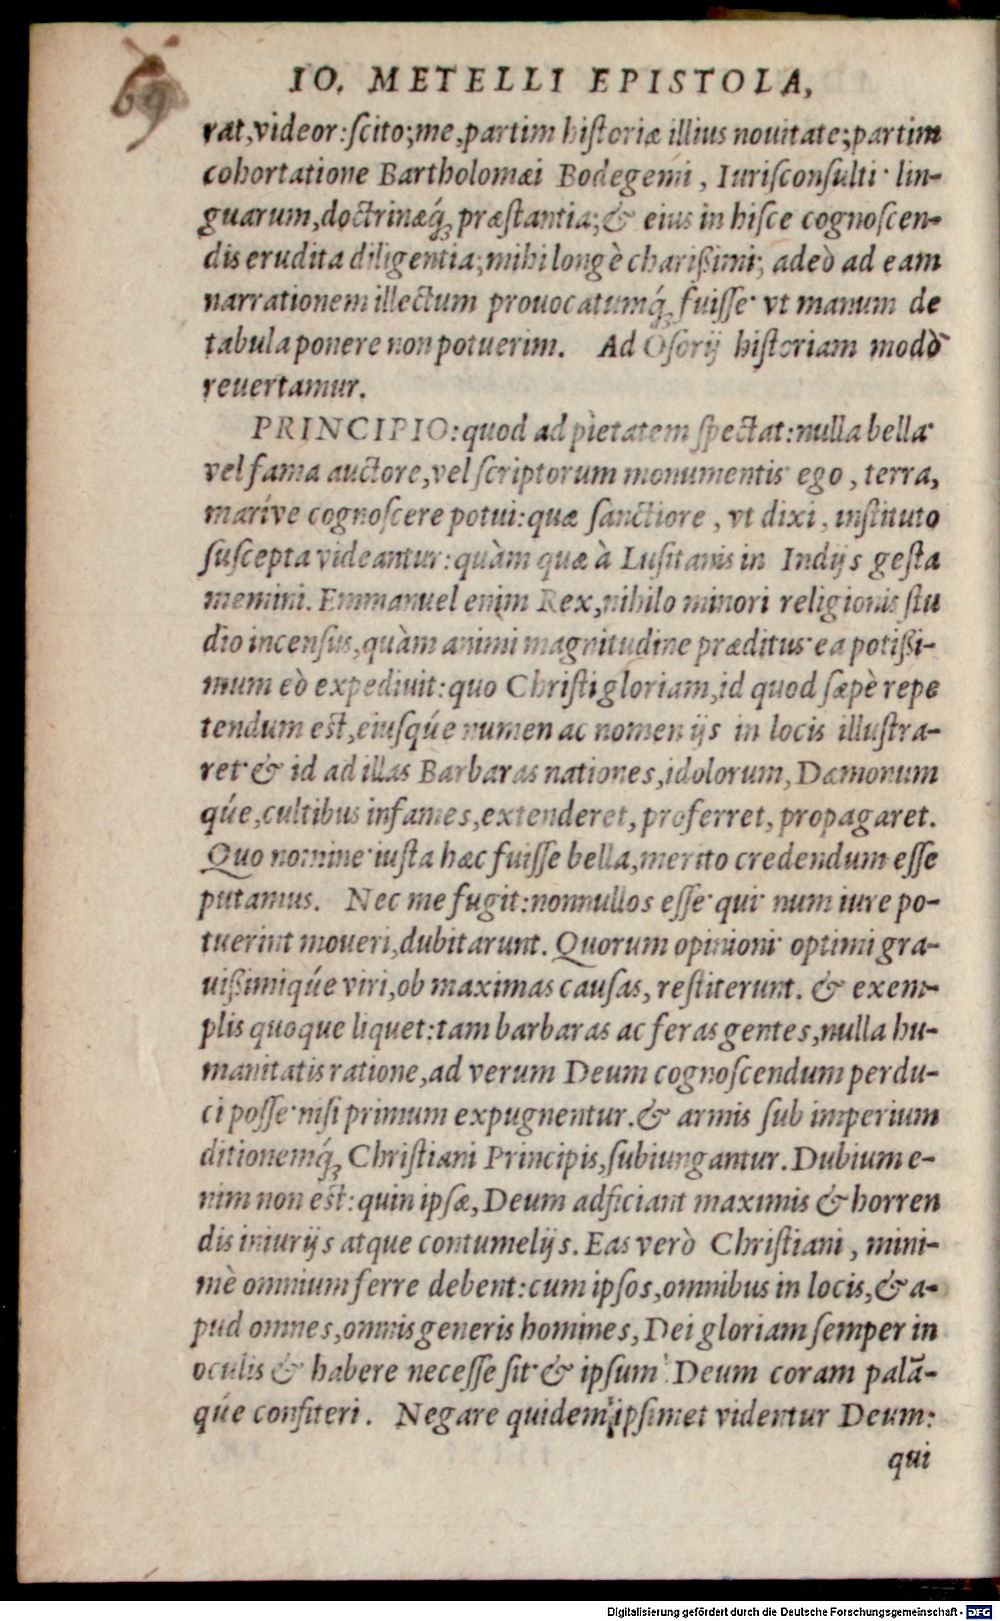 69
IO. METELLI EPISTOLA,
rat, videor: scito; me, partim historiæ illius nouitate; partim
cohortatione Bartholomæi Bodegemi, Iurisconsulti· lin-
guarum, doctrinæq́; præstantia; & eius in hisce cognoscen-
dis erudita diligentia; mihi longè charißimi; adeò ad eam
narrationem illectum prouocatumq́; fuisse· vt manum de
tabula ponere non potuerim. Ad Osorij historiam modò
reuertamur.
PRINCIPIO: quod ad pietatem spectat: nulla bella·
vel fama auctore, vel scriptorum monumentis· ego, terra,
maríve cognoscere potui: quæ sanctiore, vt dixi, instituto
suscepta videantur: quàm quæ à Lusitanis in Indijs gesta
memini. Emmanuel enim Rex, nihilo minori religionis stu
dio incensus, quàm animi magnitudine præditus· ea potißi-
mum eò expediuit: quo Christi gloriam, id quod sæpè repe
tendum est, eiusqúe numen ac nomen ijs in locis illustra-
ret· & id ad illas Barbaras nationes, idolorum, Dæmonum
qúe, cultibus infames, extenderet, proferret, propagaret.
Quo nomine· iusta hæc fuisse bella, merito credendum esse
putamus. Nec me fugit: nonnullos esse· qui· num iure po-
tuerint moueri, dubitarunt. Quorum opinioni· optimi gra-
uißimiqúe viri, ob maximas causas, restiterunt. & exem-
plis quoque liquet: tam barbaras ac feras gentes, nulla hu-
manitatis ratione, ad verum Deum cognoscendum perdu-
ci posse· nisi primum expugnentur. & armis sub imperium
ditionemq́; Christiani Principis, subiungantur. Dubium e-
nim non est: quin ipsæ, Deum adficiant maximis & horren
dis iniurijs atque contumelijs. Eas verò Christiani, mini-
mè omnium ferre debent: cum ipsos, omnibus in locis, & a-
pud omnes, omnis generis homines, Dei gloriam semper in
oculis & habere necesse sit· & ipsum Deum coram palã-
qúe confiteri. Negare quidem ipsimet videntur Deum:
qui
Digitalisierung gefördert durch die Deutsche Forschungsgemeinschaft - DFG